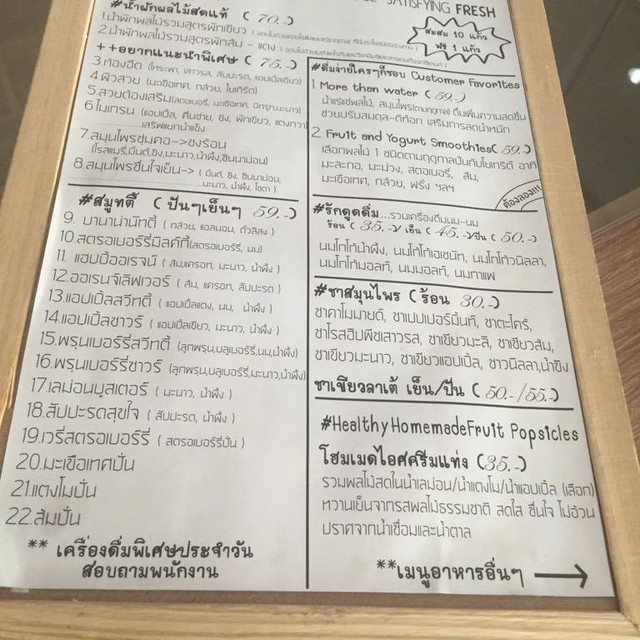 SATISFYING FRESH
#น้ำผักผลไม้สดแท้ ( 70.-)
1.น้ำผักผลไม้รวมสูตรผักเขียว
2.น้ำผักผลไม้รวมสูตรผักส้ม - แดง
++อยากแนะนำพิเศษ ( 75.-)
3.ท้องอืด (โหระพา, เสาวรส, สับปะรด, แอปเปิ้ลเขียว)
4.ผิวสวย (มะเขือเทศ, กล้วย, โยเกิร์ต)
5.สวยต้องเสริม(สตอเบอรี่, มะเขือเทศ, บีทรูท,มะนาว)
6.ไมเกรน (แอปเปิ้ล, คื่นช่าย, ขิง, ผักเขียว, แตงกวา)
เสริฟแยกน้ำแข็ง
7.สมุนไพรชุ่มคอ-> ชงร้อน
(โรสแมรี่,มิ้นต์,ขิง,มะนาว,น้ำผึ้ง,ซินนาม่อน)
8.สมุนไพรชื่นใจเย็น-> ( มิ้นต์, ขิง, ซินนาม่อน,
มะนาว, น้ำผึ้ง, โซดา )
#สมูทตี้ ( ปั่นๆเย็นๆ 59.-)
9. บานาน่านัทตี้ ( กล้วย, แอลมอน, ถั่วลิสง )
10.สตรอเบอร์รี่มิลค์กี้(สตรอเบอร์รี่, นม)
11. แฮปปี้ออเรจน์ ( ส้ม,แครอท, มะนาว, น้ำผึ้ง )
12.ออเรนจ์เลิฟเวอร์ ( ส้ม, แครอท, สับปะรด )
13.แอปเปิ้ลสวีทตี้ ( แอปเปิ้ลแดง, นม, น้ำผึ้ง )
14.แอปเปิ้ลซาวร์ ( แอปเปิ้ลเขียว, มะนาว, น้ำผึ้ง )
15.พรุนเบอร์รี่สวีทตี้ (ลูกพรุน,บลูเบอร์รี่,นม,น้ำผึ้ง)
16.พรุนเบอร์รี่ซาวร์ (ลูกพรุน,บลูเบอร์รี่,มะนาว,น้ำผึ้ง)
17.เลม่อนบูสเตอร์ ( มะนาว, น้ำผึ้ง )
18.สับปะรดสุขใจ ( สับปะรด, น้ำผึ้ง )
19.เวรี่สตรอเบอร์รี่ ( สตรอเบอร์รี่ปั่น )
20.มะเขือเทศปั่น
21.แตงโมปั่น
22.ส้มปั่น
** เครื่องดื่มพิเศษประจำวัน
สอบถามพนักงาน
สะสม 10 แก้ว
ฟรี 1 แก้ว
#ดื่มง่ายใครๆก็ชอบ Customer Favorites
1 More than water ( 59.-)
น้ำแร่แช่ผลไม้, สมุนไพร(ตามฤดูกาล) ดื่มเพิ่มความสดชื่น
ช่วยปรับสมดุล-ดีท็อก เสริมการลดน้ำหนัก
2 Fruit and Yogurt Smoothies( 59.-)
เลือกผลไม้ 1 ชนิดตามฤดูกาลปั่นกับโยเกิร์ต อาทิ
มะละกอ, มะม่วง, สตอเบอรี่, ส้ม,
มะเขือเทศ, กล้วย, ฝรั่ง ฯลฯ
ต้องลอง!!!
#รักดูดดื่ม...รวมเครื่องดื่มนม-นม
ร้อน ( 35.-)/ เย็น ( 45.-)/ปั่น ( 50.-)
นมโกโก้น้ำผึ้ง, นมโกโก้เฮเซนัท, นมโกโก้วนิลลา,
นมโกโก้มอลท์, นมมอลท์, นมกาแฟ
#ชาสมุนไพร (ร้อน 30.-)
ชาคาโมมายด์, ชาเปปเปอร์มิ้นท์, ชาตะไคร้,
ชาโรสฮิปพีชเสาวรส, ชาเขียวมะลิ, ชาเขียวส้ม,
ชาเขียวมะนาว, ชาเขียวแอปเปิ้ล, ชาวนิลลา,น้ำขิง
ชาเขียวลาเต้ เย็น/ปั่น ( 50.-/55.-)
#HealthyHomemadeFruit Popsicles
โฮมเมดไอศครีมแท่ง (35.-)
รวมผลไม้สดในน้ำเลม่อน/น้ำแตงโม/น้ำแอปเปิ้ล (เลือก)
หวานเย็นจากรสผลไม้ธรรมชาติ สดใส ชื่นใจ ไม่อ้วน
ปราศจากน้ำเชื่อมและน้ำตาล
**เมนูอาหารอื่นๆ